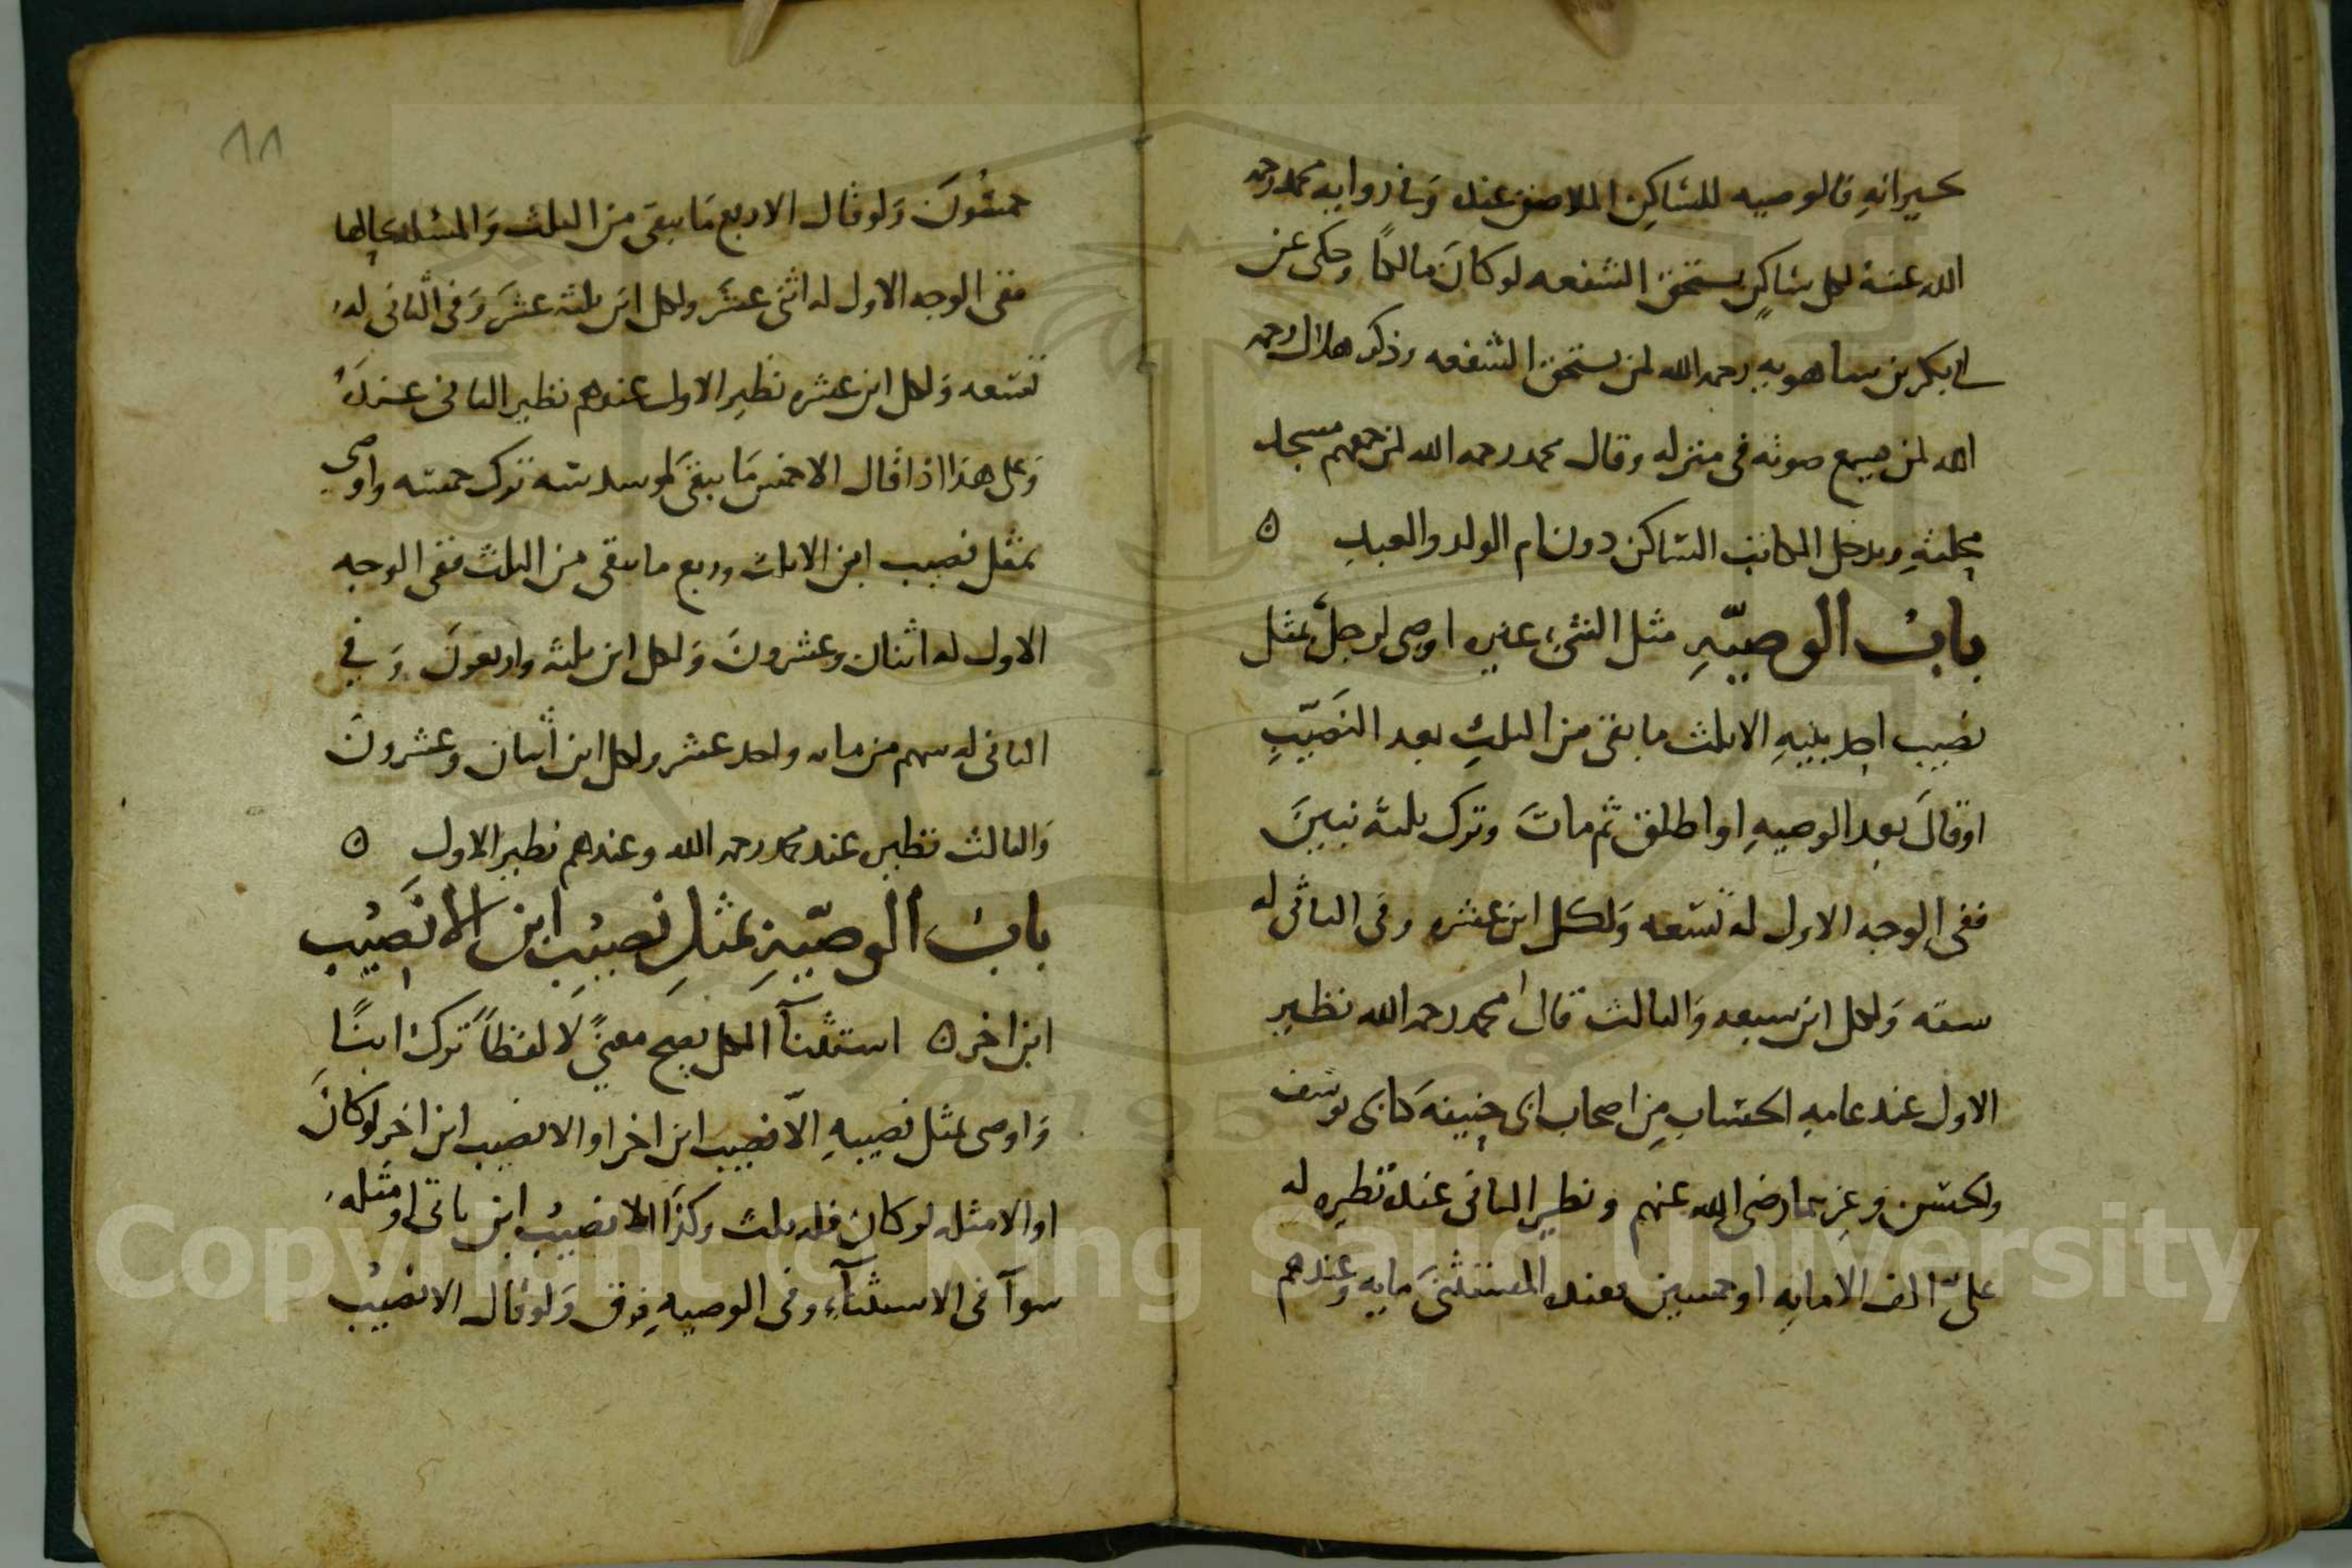 لجيرانه فالوصيه للساكن الملاصق عنده وفي روايه محمد رحمه
الله عنه لكل ساكن يستحق الشفعه لو كان مالكا وحكى عن
ابي بكر بن شاهويه رحمه الله لمن يستحق الشفعه وذكر هلال رحمه
الله لمن يسمع صوته في منزله وقال محمد رحمه الله لمن جمعهم مسجد
محلته ويدخل المكاتب الساكن دون ام الولد والعبد ه
باب الوصيّه مثل الشيء غيره اوصى لرجل بمثل
نصيب احد بنيه الا ثلث ما بقى من الثلث بعد النصيب
او قال بعد الوصيه او اطلق ثم مات وترك ثلثه بنين
ففي الوجه الاول له تسعه ولكل ابن عشره وفي الثاني له
سته ولكل ابن سبعه والثالث قال محمد رحمه الله نظير
الاول عند عامه الحساب من اصحاب ابي حنيفه كابي يوسف
والحسن وغيرهما رضي الله عنهم ونظير الثاني عنده نظيره له
عليّ الف الا مايه او خمسين فعنده المستثنى مايه وعندهم
٨٨
خمسون ولو قال الا ربع ما يبقى من الثلث والمسئله بحالها
ففي الوجه الاول له اثنى عشر ولكل ابن ثلثه عشر وفي الثاني له
تسعه ولكل ابن عشره نظير الاول عندهم نظير الثاني عنده
وعلى هذا اذا قال الا خمس ما يبقى او سدسه ترك خمسه واوصى
بمثل نصيب ابن الا ثلث وربع ما يبقى من الثلث ففي الوجه
الاول له اثنان وعشرون ولكل ابن ثلثه واربعون وفي
الثاني له سهم من مايه واحد عشر ولكل ابن اثنان وعشرون
والثالث نظيره عند محمد رحمه الله وعندهم نظير الاول ه
باب الوصيّه بمثل نصيب ابن الا نصيب
ابن اخر ه استثنآ الكل يصح معنىً لا لفظاً ترك ابنًا
واوصى بمثل نصيبه الّا نصيب ابن اخر او الا نصيب ابن اخر لو كان
او الا مثله لو كان فله ثلث وكذا الا نصيب ابن باقي او مثله
سوآ في الاستثنآء وفي الوصيه فرق ولو قال الا نصيب
Copyright © King Saud University